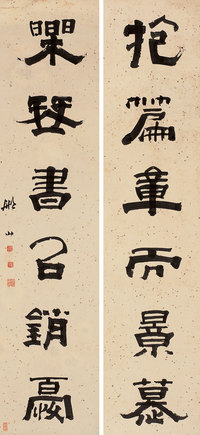 抱篇章而景慕
樂琴書以銷憂
山